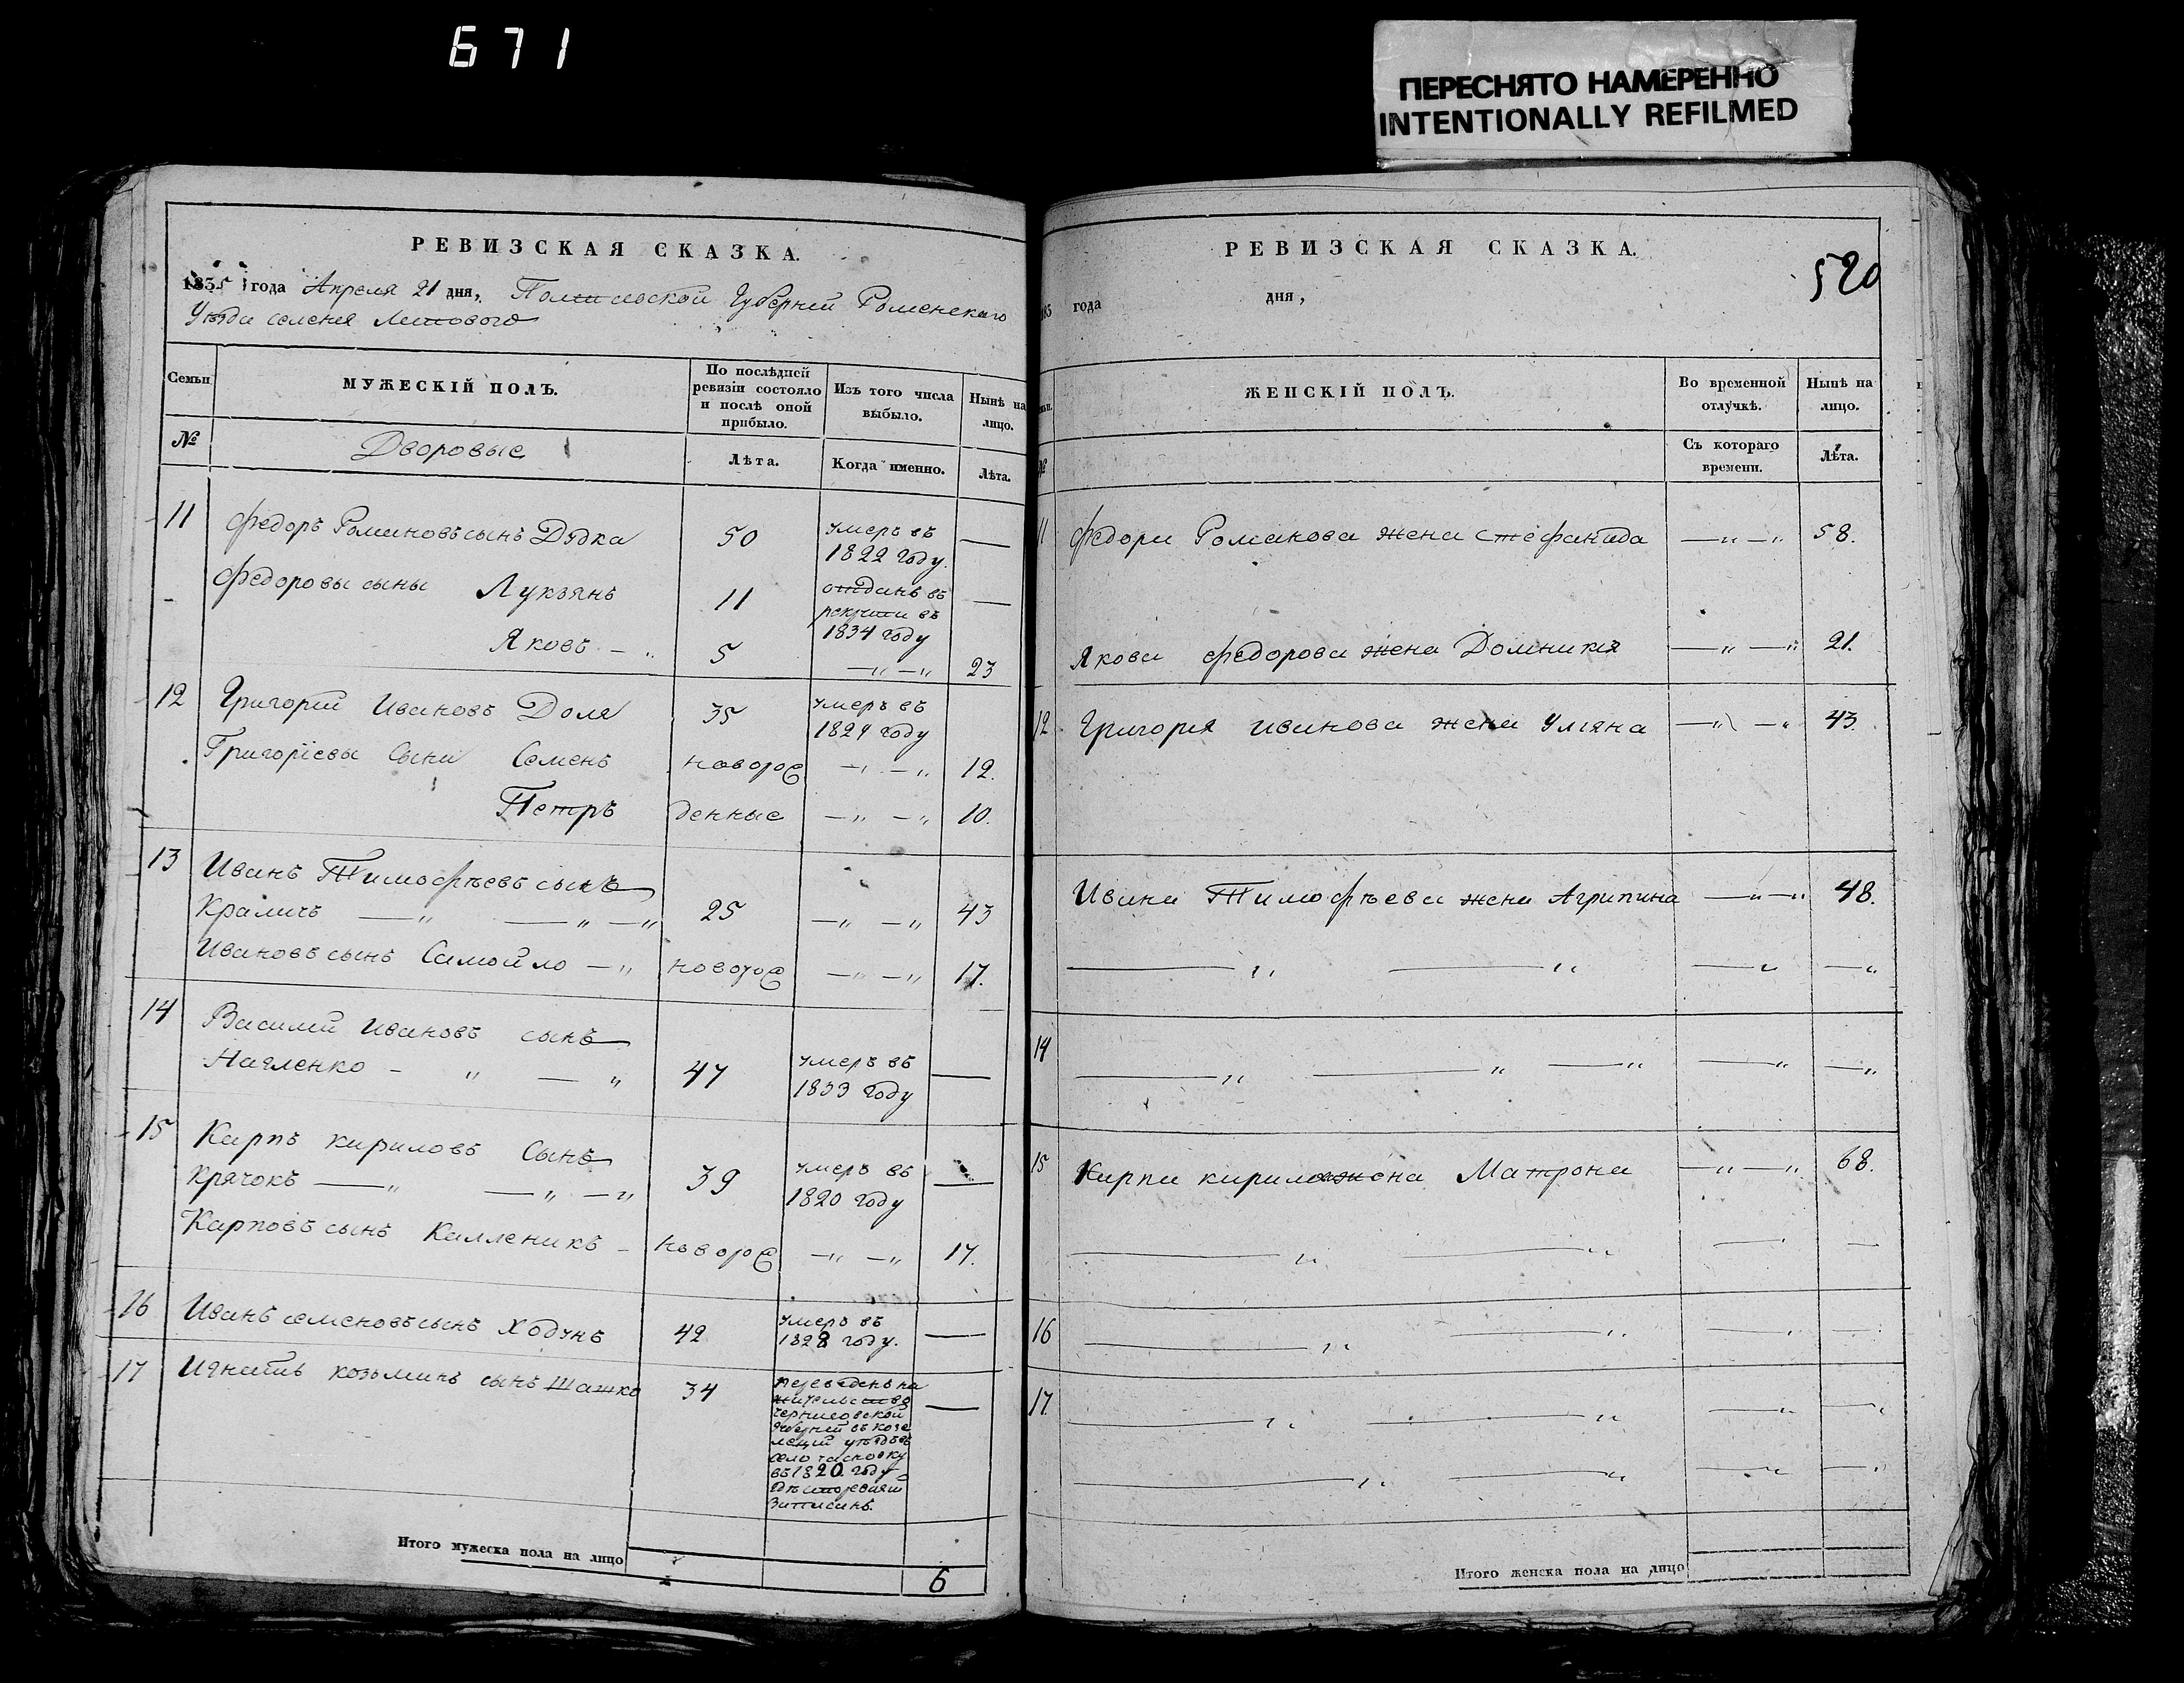 671
ПЕРЕСНЯТО НАМЕРЕННО
INTENTIONALLY REFILMED
РЕВИЗСКАЯ СКАЗКА.
1835 года Апреля 21 дня, Полтавской Губерніи Роменскаго
Уѣзда селенія
Семьи
МУЖЕСКІЙ ПОЛЪ.
По послѣдней ревизіи состояло и послѣ оной прибыло.
Изъ того числа выбыло.
Нынѣ на лицо.
№
Дворовые
Лѣта.
Когда именно.
Лѣта.
11 Федоръ Романовъ сынъ Дядка 50 умеръ въ 1822 году. —
Федоровы сыны Лукьянъ 11 отданъ въ рекруты въ 1834 году —
Яковъ — „ 5 — „ — „ 23
12 Григорій Ивановъ Доля 35 умеръ въ 1824 году
Григоріевы Сыни Семенъ новорож — „ — „ 12.
Петръ денные — „ — „ 10.
13 Иванъ Тимофѣевъ сынъ
Крамичъ — „ — „ — „ 25 — „ — „ 43
Ивановъ сынъ Самойло — „ новорож — „ — „ 17.
14 Василій Ивановъ сынъ
— „ — „ 47 умеръ въ 1833 году —
15 Карпъ Кириловъ Сынъ
Крячокъ — „ — „ — „ 39 умеръ въ 1820 году —
Карповъ сынъ Калленикъ — новорож — „ — „ 17.
16 Иванъ Семеновъ сынъ Ходунъ 42 умеръ въ 1828 году. —
17 Игнатъ Козьминъ сынъ Шашко 34 —
переведенъ на
жительство
Черниговской
Губерніи въ Козе
лецкій уѣздъ въ
село
въ 1820 году
гдѣ по ревизіи
записанъ.
Итого мужеска пола на лицо
6
РЕВИЗСКАЯ СКАЗКА.
520
183 года дня,
ЖЕНСКІЙ ПОЛЪ.
Во временной отлучкѣ.
Нынѣ на лицо.
№
Съ котораго времени.
Лѣта.
11 Федора Романова жена Стефанида — „ — „ 58.
Якова Федорова жена Домникія — „ — „ 21.
12 Григорія Иванова жена Уляна — „ — „ 43.
Ивана Тимофѣева жена Агрипина — „ — „ 48.
— „ — „ — „ — „
14 — „ — „ — „ — „ — „
15 Карпа Кирилова жена Матрона — „ — „ 68.
— „ — „ — „ —
16 — „ — „ — „ — „
17. — „ — „ — „ — „
— „ — „ — „ — „
Итого женска пола на лицо